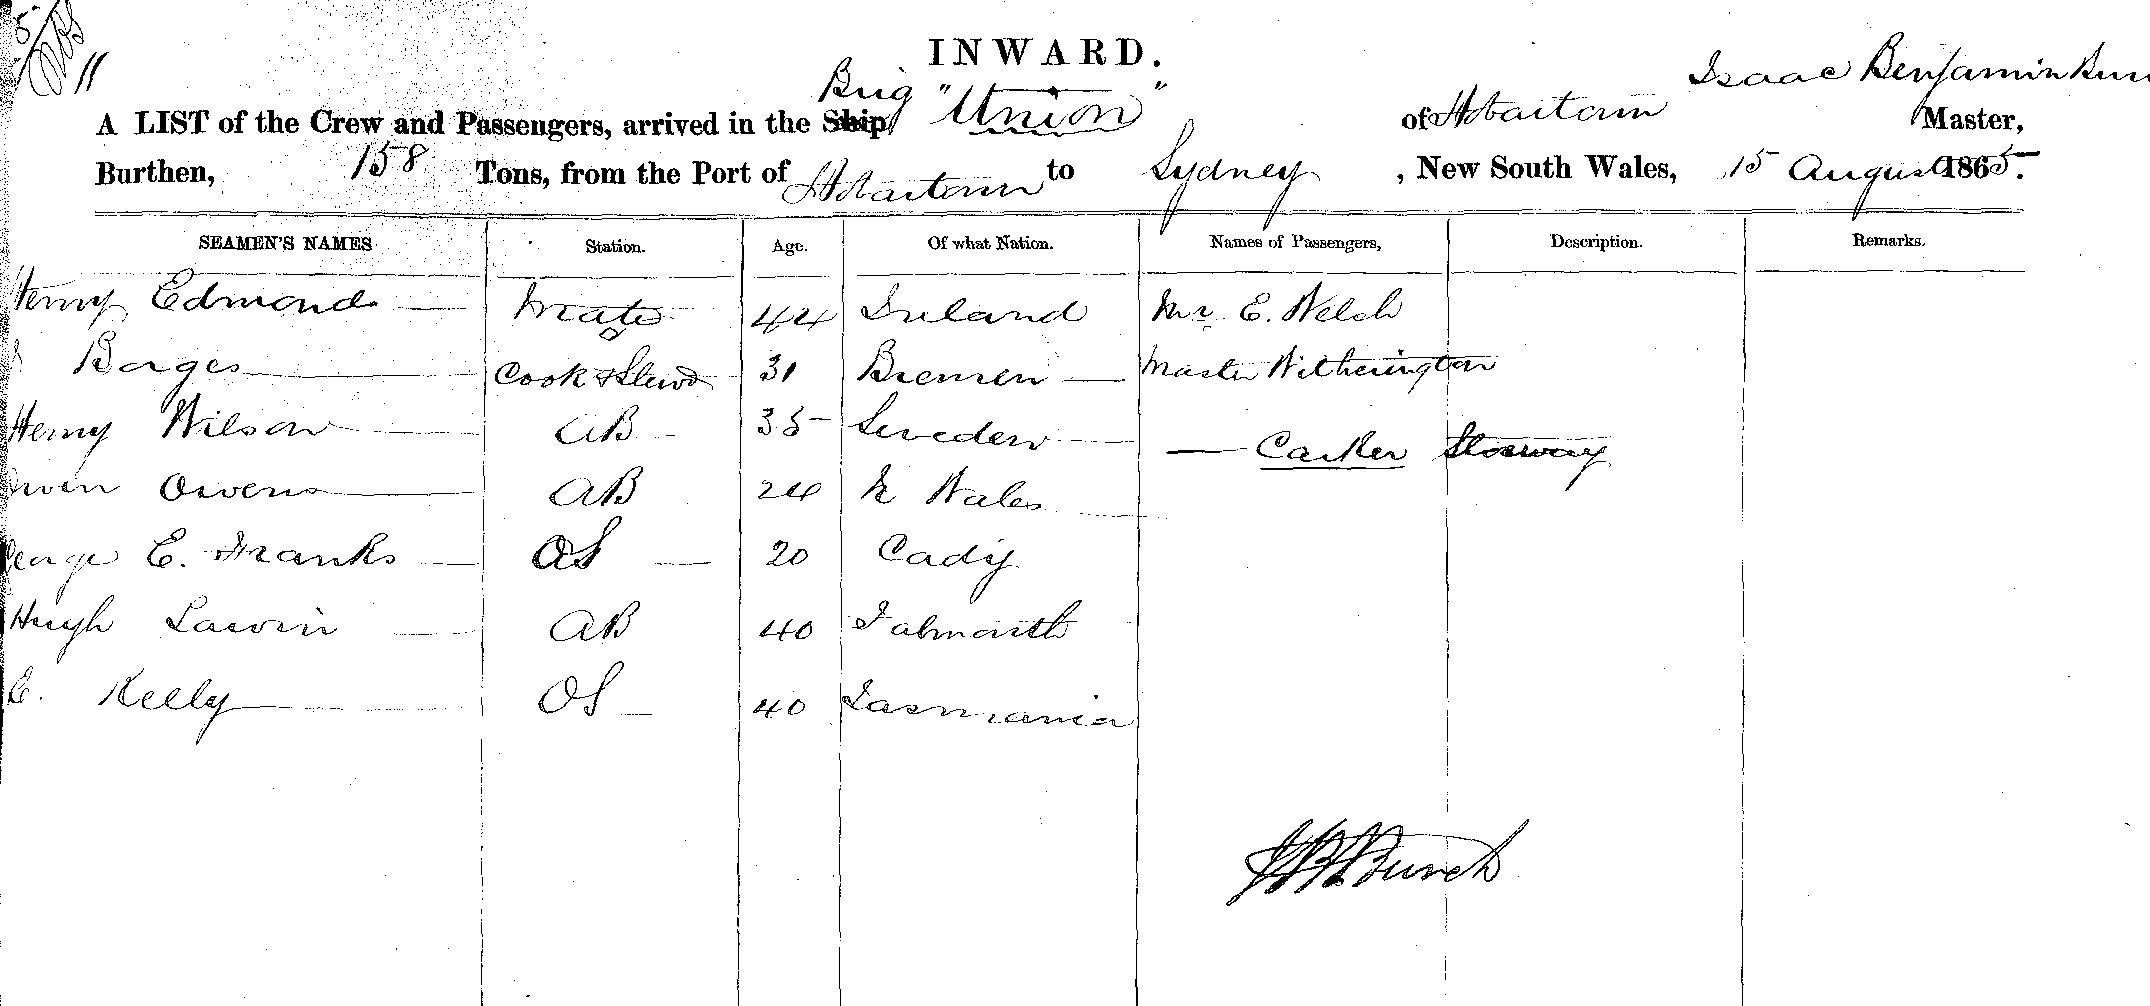 11
INWARD.
Isaac Benjamin
Brig "Union"
A LIST of the Crew and Passengers, arrived in the Ship, of Hobartown Master,
Burthen, 158 Tons, from the Port of Hobartown to Sydney, New South Wales, 15 August 1865.
SEAMEN'S NAMES Station. Age. Of what Nation. Names of Passengers, Description. Remarks.
Henry Edmonds Mate 44 Ireland Mr E. Welch
Borges Cook & Stewd 31 Bremen Master Witherington
Henry Wilson AB 35 Sweden Carker Stowway
Owen Owens AB 24 N Wales
George E. Franks OS 20 Cadiz
Hugh Lawin AB 40 Falmouth
C. Kelly OS 40 Tasmania
Burch